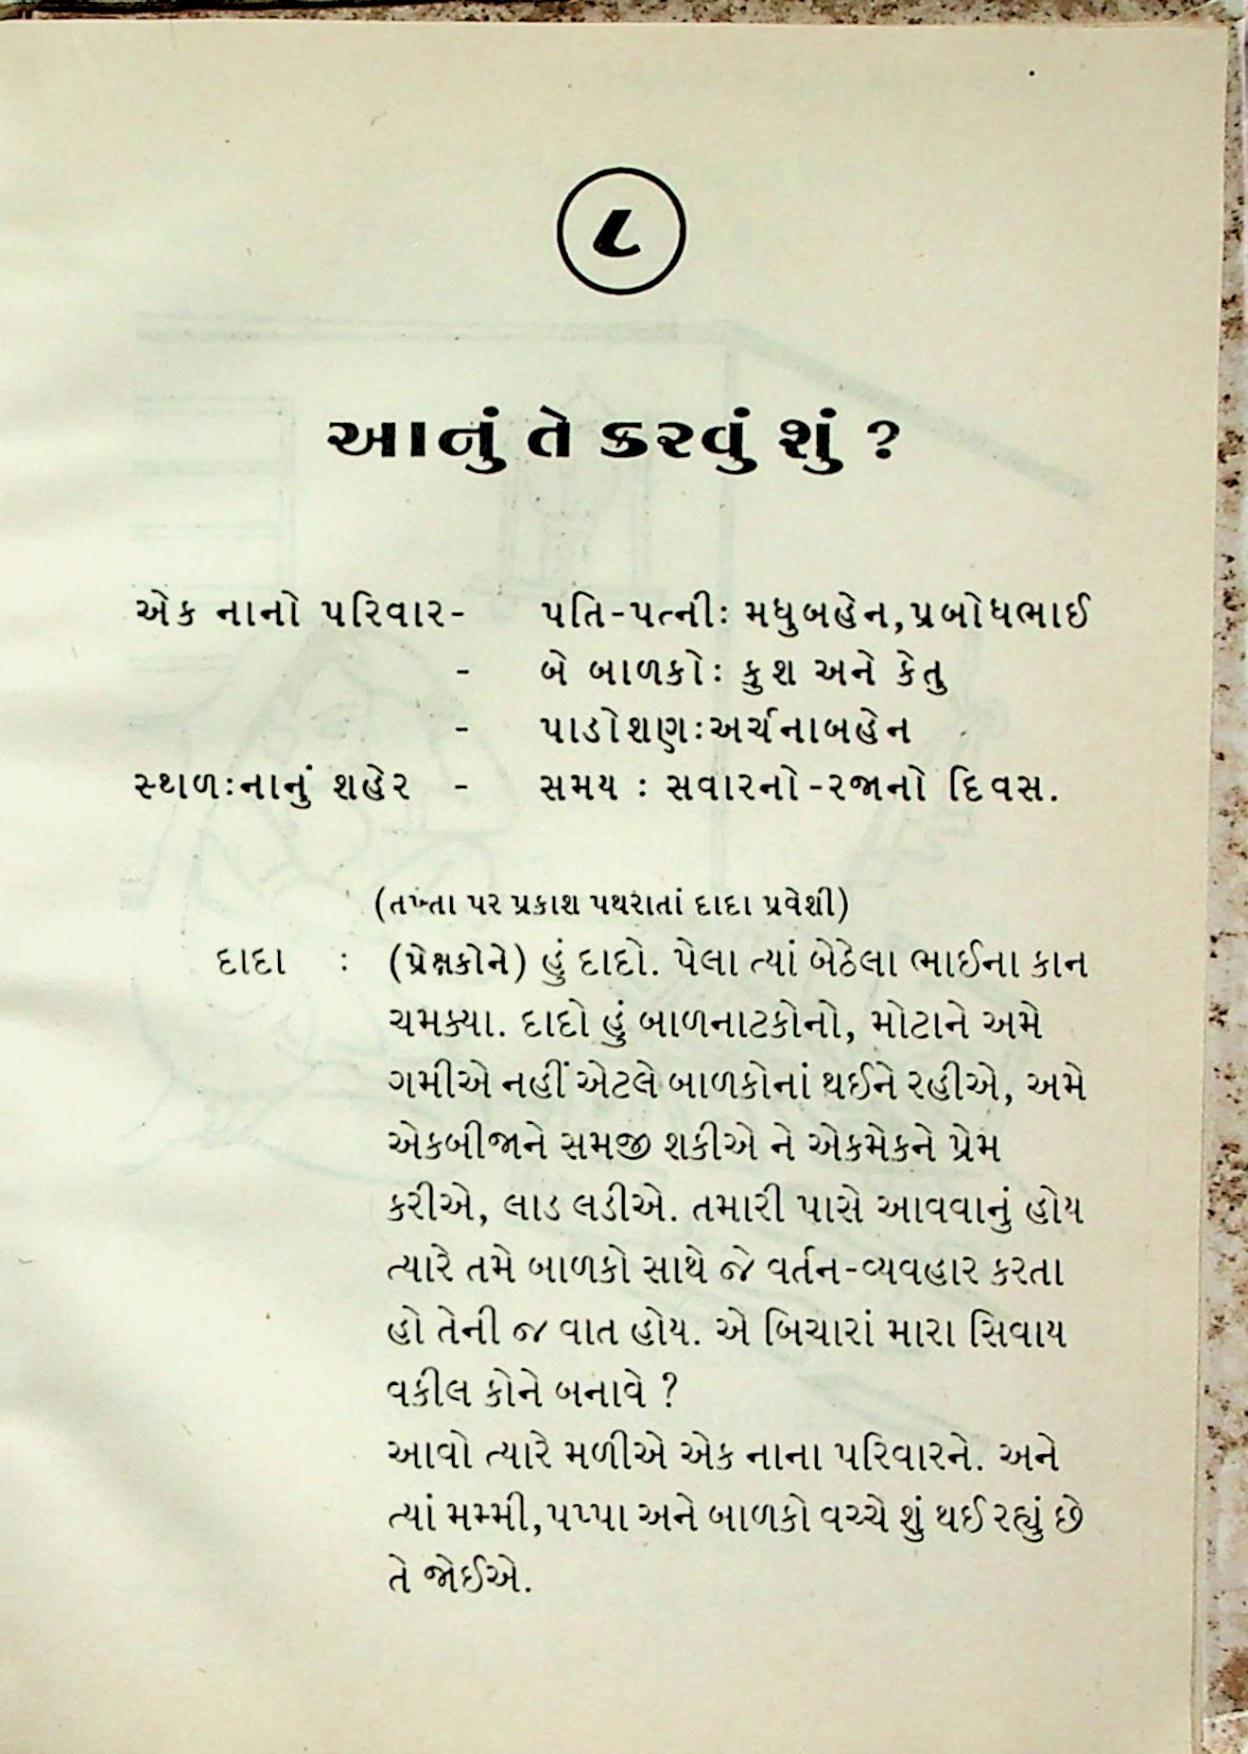 ૮
આનું તે કરવું શું ?
એક નાનો પરિવાર- પતિ-પત્નીઃ મધુબહેન,પ્રબોધભાઈ
- બે બાળકોઃ કુશ અને કેતુ
- પાડોશણઃઅર્ચનાબહેન
સ્થળઃનાનું શહેર - સમય : સવારનો-રજાનો દિવસ.
(તખ્તા પર પ્રકાશ પથરાતાં દાદા પ્રવેશી)
દાદા : (પ્રેક્ષકોને) હું દાદો. પેલા ત્યાં બેઠેલા ભાઈના કાન
ચમક્યા. દાદો હું બાળનાટકોનો, મોટાને અમે
ગમીએ નહીં એટલે બાળકોનાં થઈને રહીએ, અમે
એકબીજાને સમજી શકીએ ને એકમેકને પ્રેમ
કરીએ, લાડ લડીએ. તમારી પાસે આવવાનું હોય
ત્યારે તમે બાળકો સાથે જે વર્તન-વ્યવહાર કરતા
હો તેની જ વાત હોય. એ બિચારાં મારા સિવાય
વકીલ કોને બનાવે ?
આવો ત્યારે મળીએ એક નાના પરિવારને. અને
ત્યાં મમ્મી,પપ્પા અને બાળકો વચ્ચે શું થઈ રહ્યું છે
તે જોઈએ.